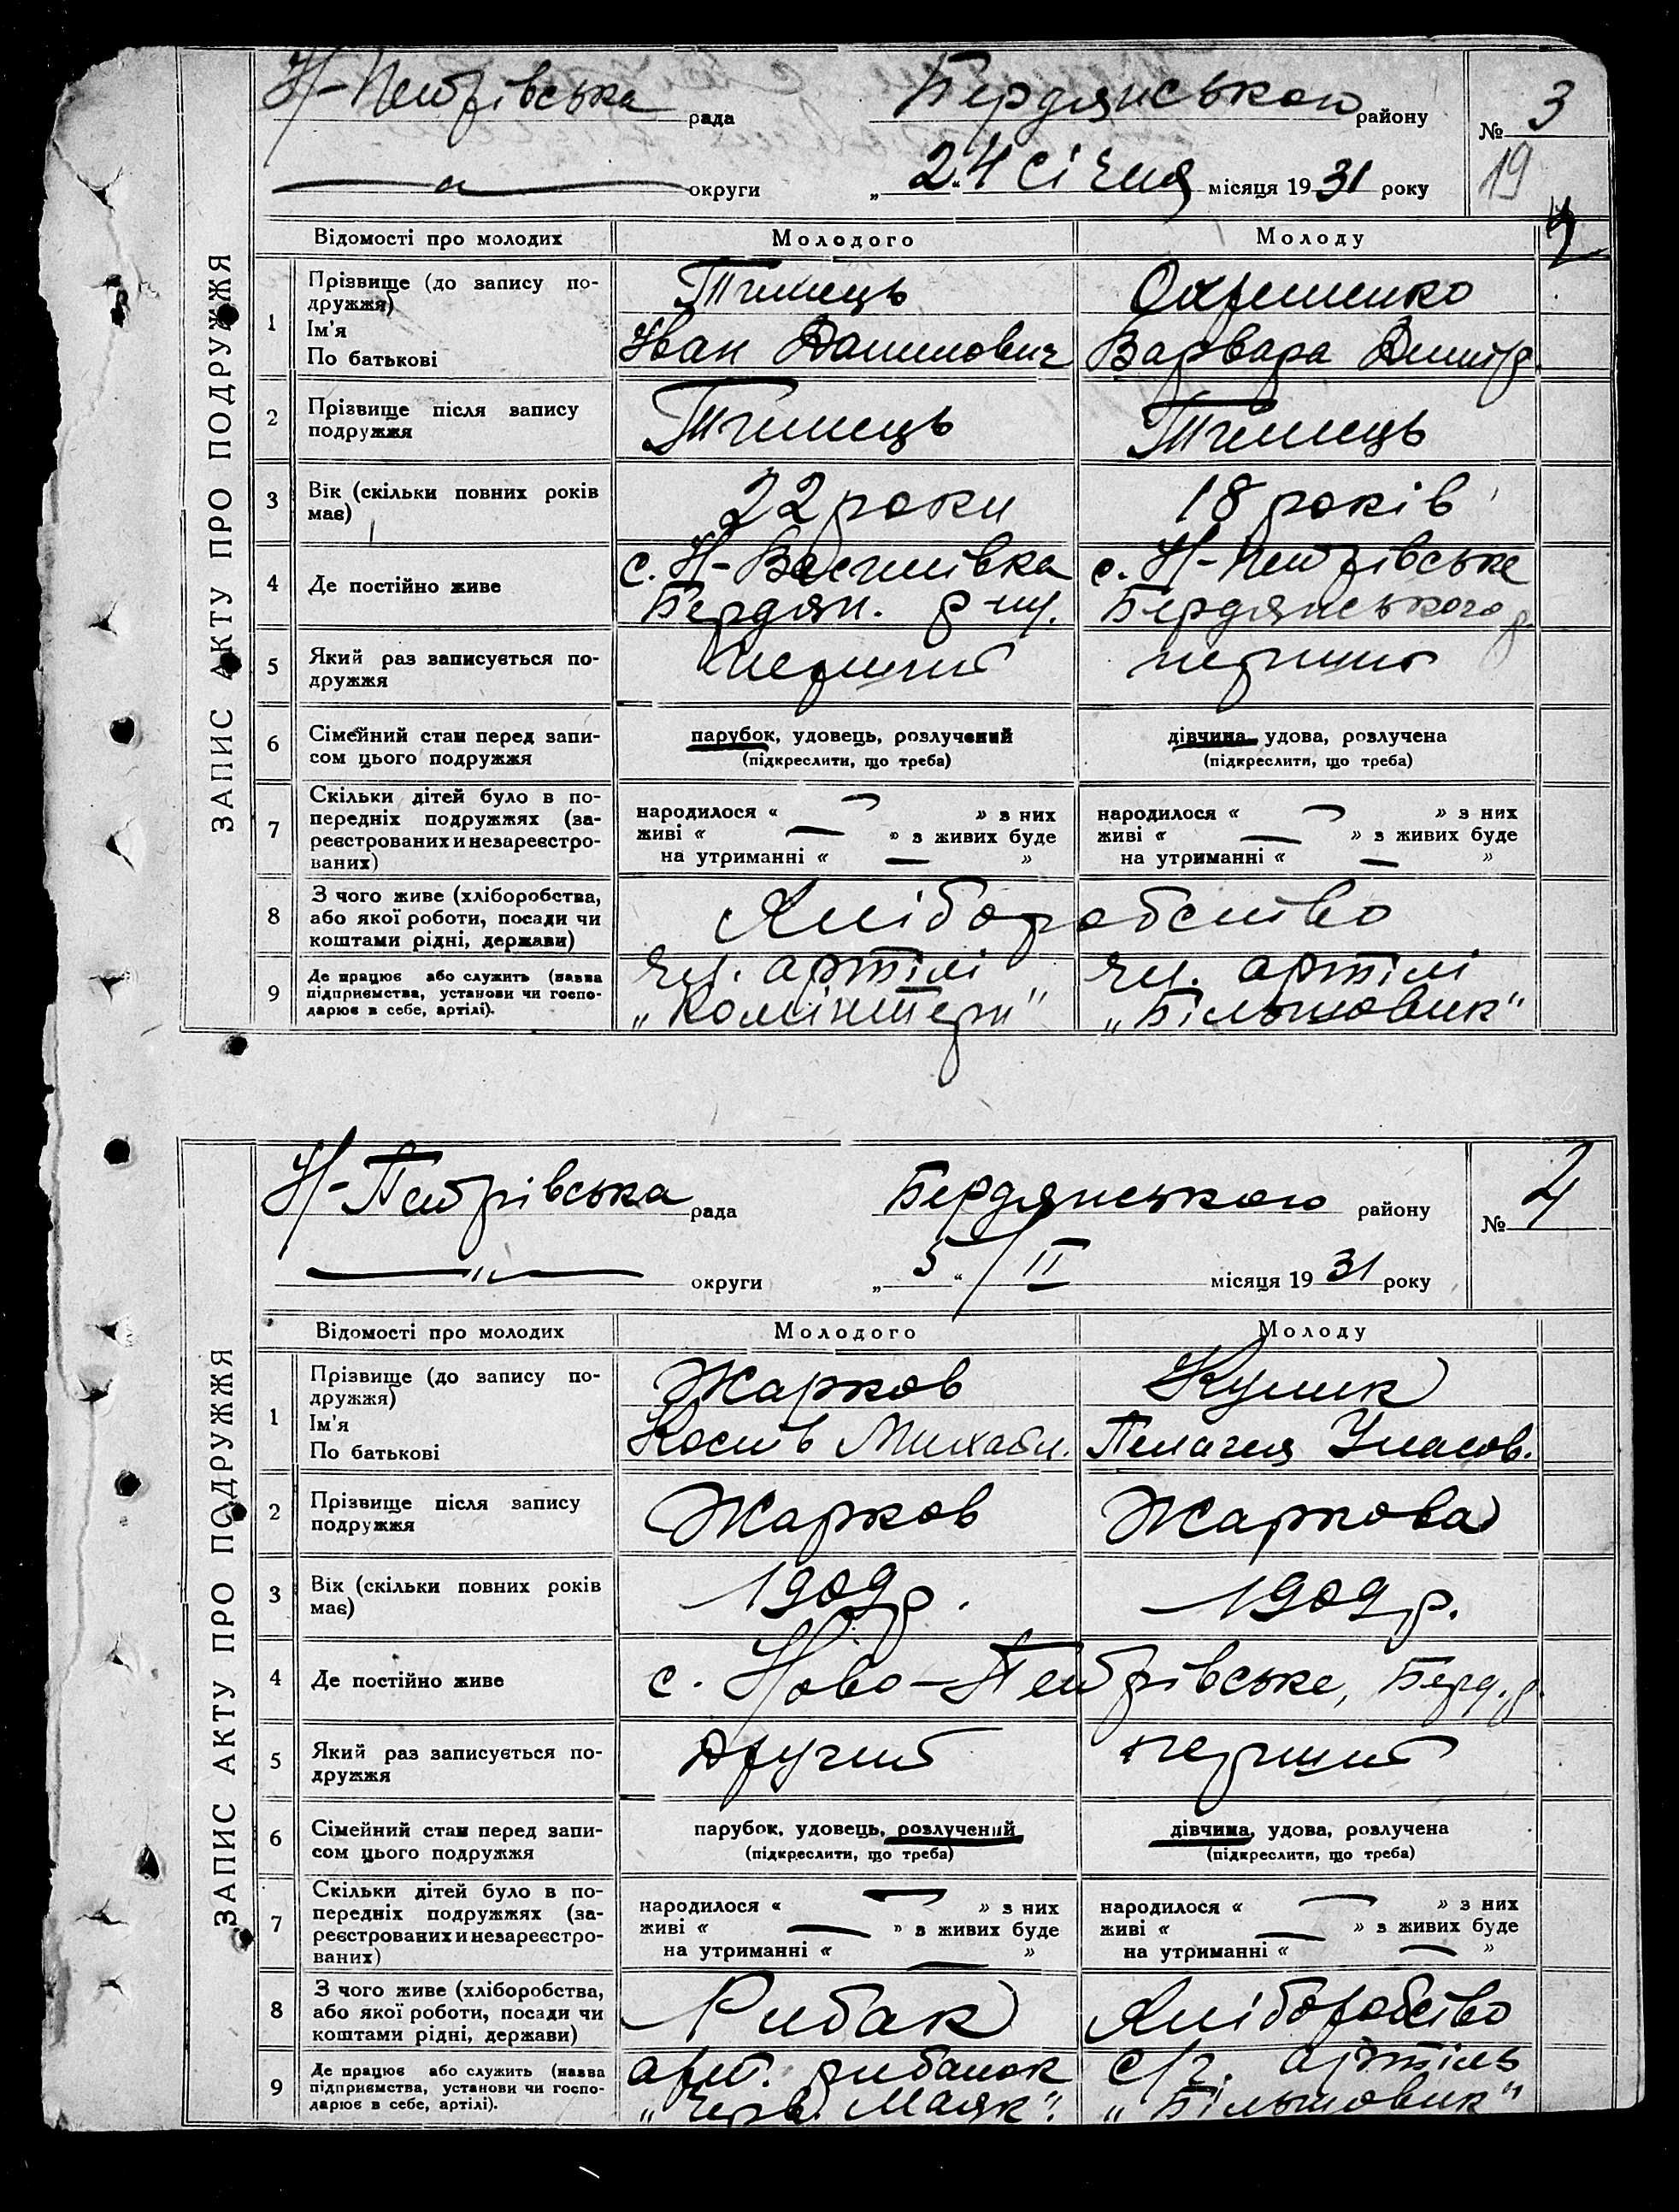 ЗАПИС АКТУ ПРО ПОДРУЖЖЯ
Н-Петрівська рада Бердянського району № 3
округи „24“ січня місяця 1931 року 19
Відомості про молодих Молодого Молоду
1 Прізвище (до запису по-
дружжя)
Ім'я Іван Данилович Варвара Дмитр.
По батькові
2 Прізвище після запису
подружжя
3 Вік (скільки повних років
має) 22 роки 18 років
4 Де постійно живе с. Н-Василівка с. Н-Петрівське
Бердян. р-ну. Бердянського р.
5 Який раз записується по-
дружжя перший перший
6 Сімейний стан перед запи- парубок, удовець, розлучений дівчина, удова, розлучена
сом цього подружжя (підкреслити, що треба) (підкреслити, що треба)
7 Скільки дітей було в по-
передніх подружжях (за-
реєстрованих и незареєстро-
ваних)
народилося « — » з них народилося « — » з них
живі « — » з живих буде живі « — » з живих буде
на утриманні « — » на утриманні « — »
8 З чого живе (хліборобства,
або якої роботи, посади чи
коштами рідні, держави) Хліборобство
9 Де працює або служить (назва
підприємства, установи чи госпо-
дарює в себе, артілі).
чл. артілі чл. артілі
„Комінтерн" „Більшовик"
ЗАПИС АКТУ ПРО ПОДРУЖЖЯ
Н-Петрівська рада Бердянського району № 4
—„— округи „5“/II місяця 1931 року
Відомості про молодих Молодого Молоду
1 Прізвище (до запису по-
дружжя) Жарков Кулик
Ім'я
По батькові Михайл. Пелагея Уласов.
2 Прізвище після запису
подружжя Жарков Жаркова
3 Вік (скільки повних років
має) 1909 р. 1909 р.
4 Де постійно живе с. Ново-Петрівське, Берд. р.
5 Який раз записується по-
дружжя другий перший
6 Сімейний стан перед запи- парубок, удовець, розлучений дівчина, удова, розлучена
сом цього подружжя (підкреслити, що треба) (підкреслити, що треба)
7 Скільки дітей було в по-
передніх подружжях (за-
реєстрованих и незареєстро-
ваних)
народилося « — » з них народилося « — » з них
живі « — » з живих буде живі « — » з живих буде
на утриманні « — » на утриманні « — »
8 З чого живе (хліборобства,
або якої роботи, посади чи
коштами рідні, держави) Рибак Хліборобство
9 Де працює або служить (назва
підприємства, установи чи госпо-
дарює в себе, артілі).
арт. рибалок с/г. артіль
„Черв. Маяк". „Більшовик"